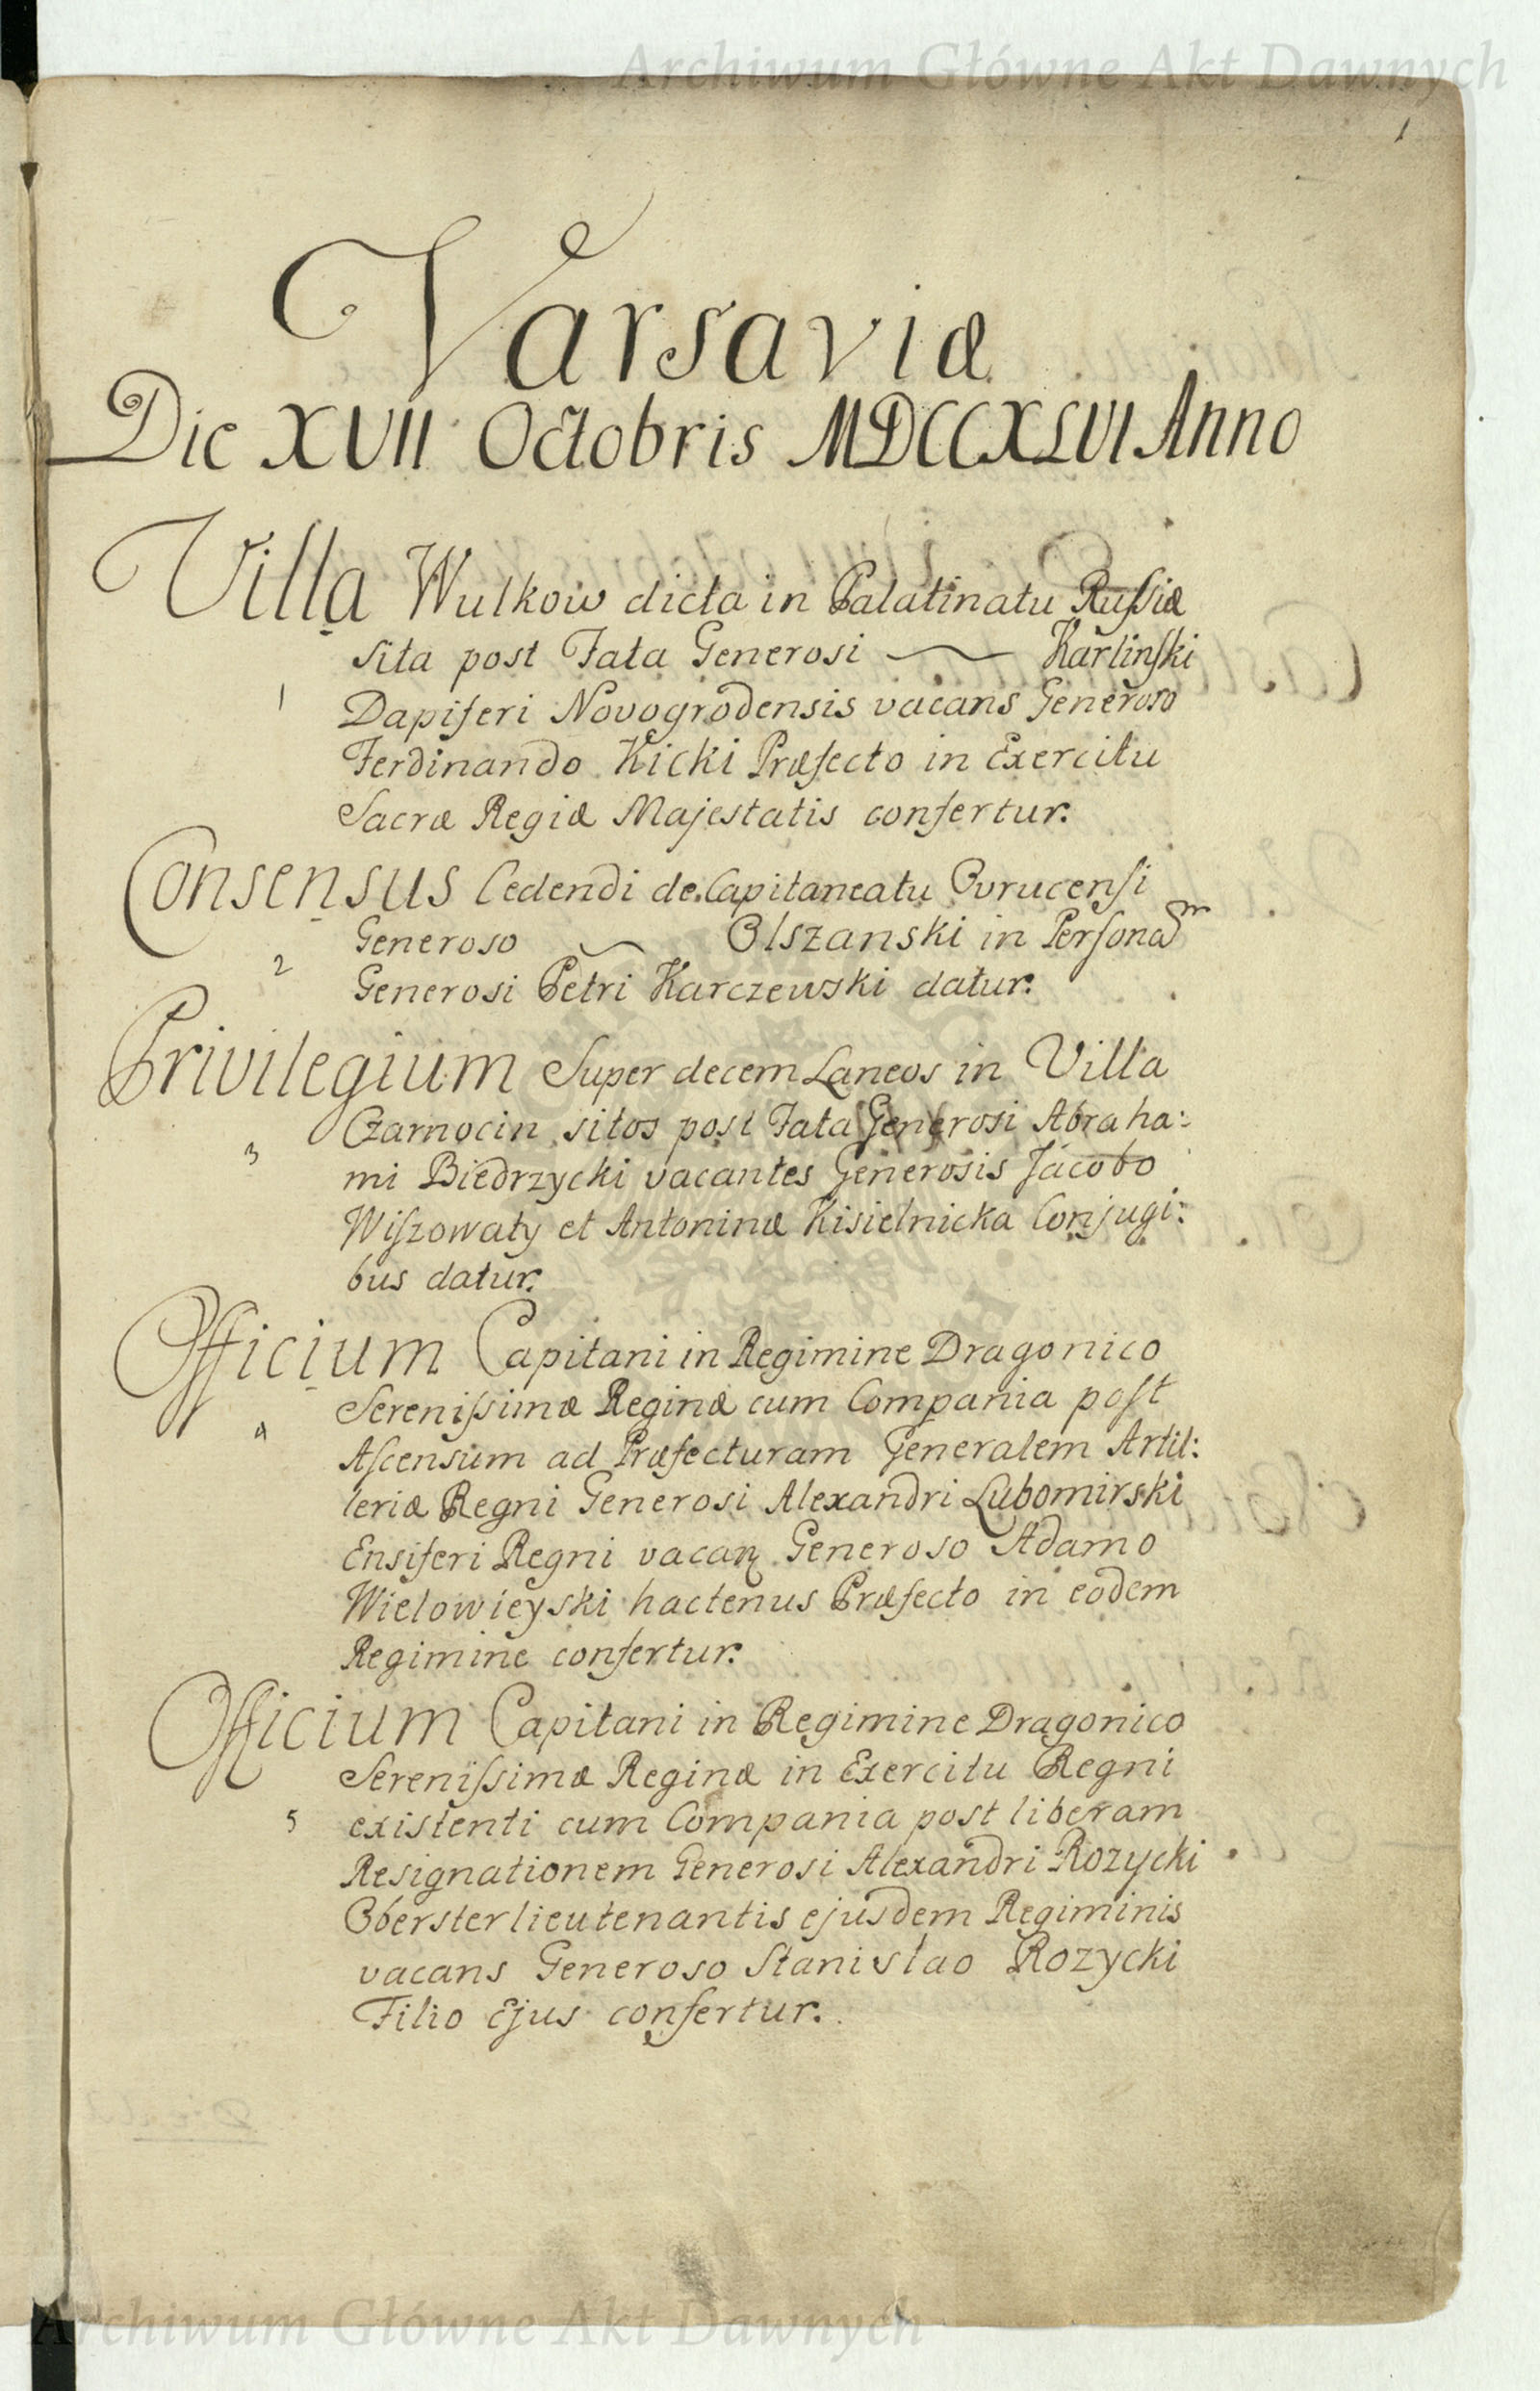 Archiwum Główne Akt Dawnych
1
Varsaviæ
Die XVII Octobris MDCCXLVI Anno
Villa Wulkow dicta in Palatinatu Russiæ
sita post Fata Generosi Karlinski
1
Dapiferi Novogrodensis vacans Generoso
Ferdinando Kicki Præfecto in Exercitu
Sacræ Regiæ Majestatis confertur.
Consensus Cedendi de Capitaneatu Ovrucensi
Generoso Olszanski in Personam
2
Generosi Petri Karczewski datur.
Privilegium Super decem Laneos in Villa
Czarnocin sitos post Fata Generosi Abraha:
3
mi Biedrzycki vacantes Generosis Jacobo
Wiszowaty et Antoninæ Kisielnicka Conjugi:
bus datur.
Officium Capitani in Regimine Dragonico
Serenissimæ Reginæ cum Compania post
4
Ascensum ad Præfecturam Generalem Artil:
leriæ Regni Generosi Alexandri Lubomirski
Ensiferi Regni vacan Generoso Adamo
Wielowieyski hactenus Præfecto in eodem
Regimine confertur.
Officium Capitani in Regimine Dragonico
Serenissimæ Reginæ in Exercitu Regni
5
existenti cum Compania post liberam
Resignationem Generosi Alexandri Rozycki
Obersterlieutenantis ejusdem Regiminis
vacans Generoso Stanislao Rozycki
Filio Ejus confertur.
Archiwum Główne Akt Dawnych